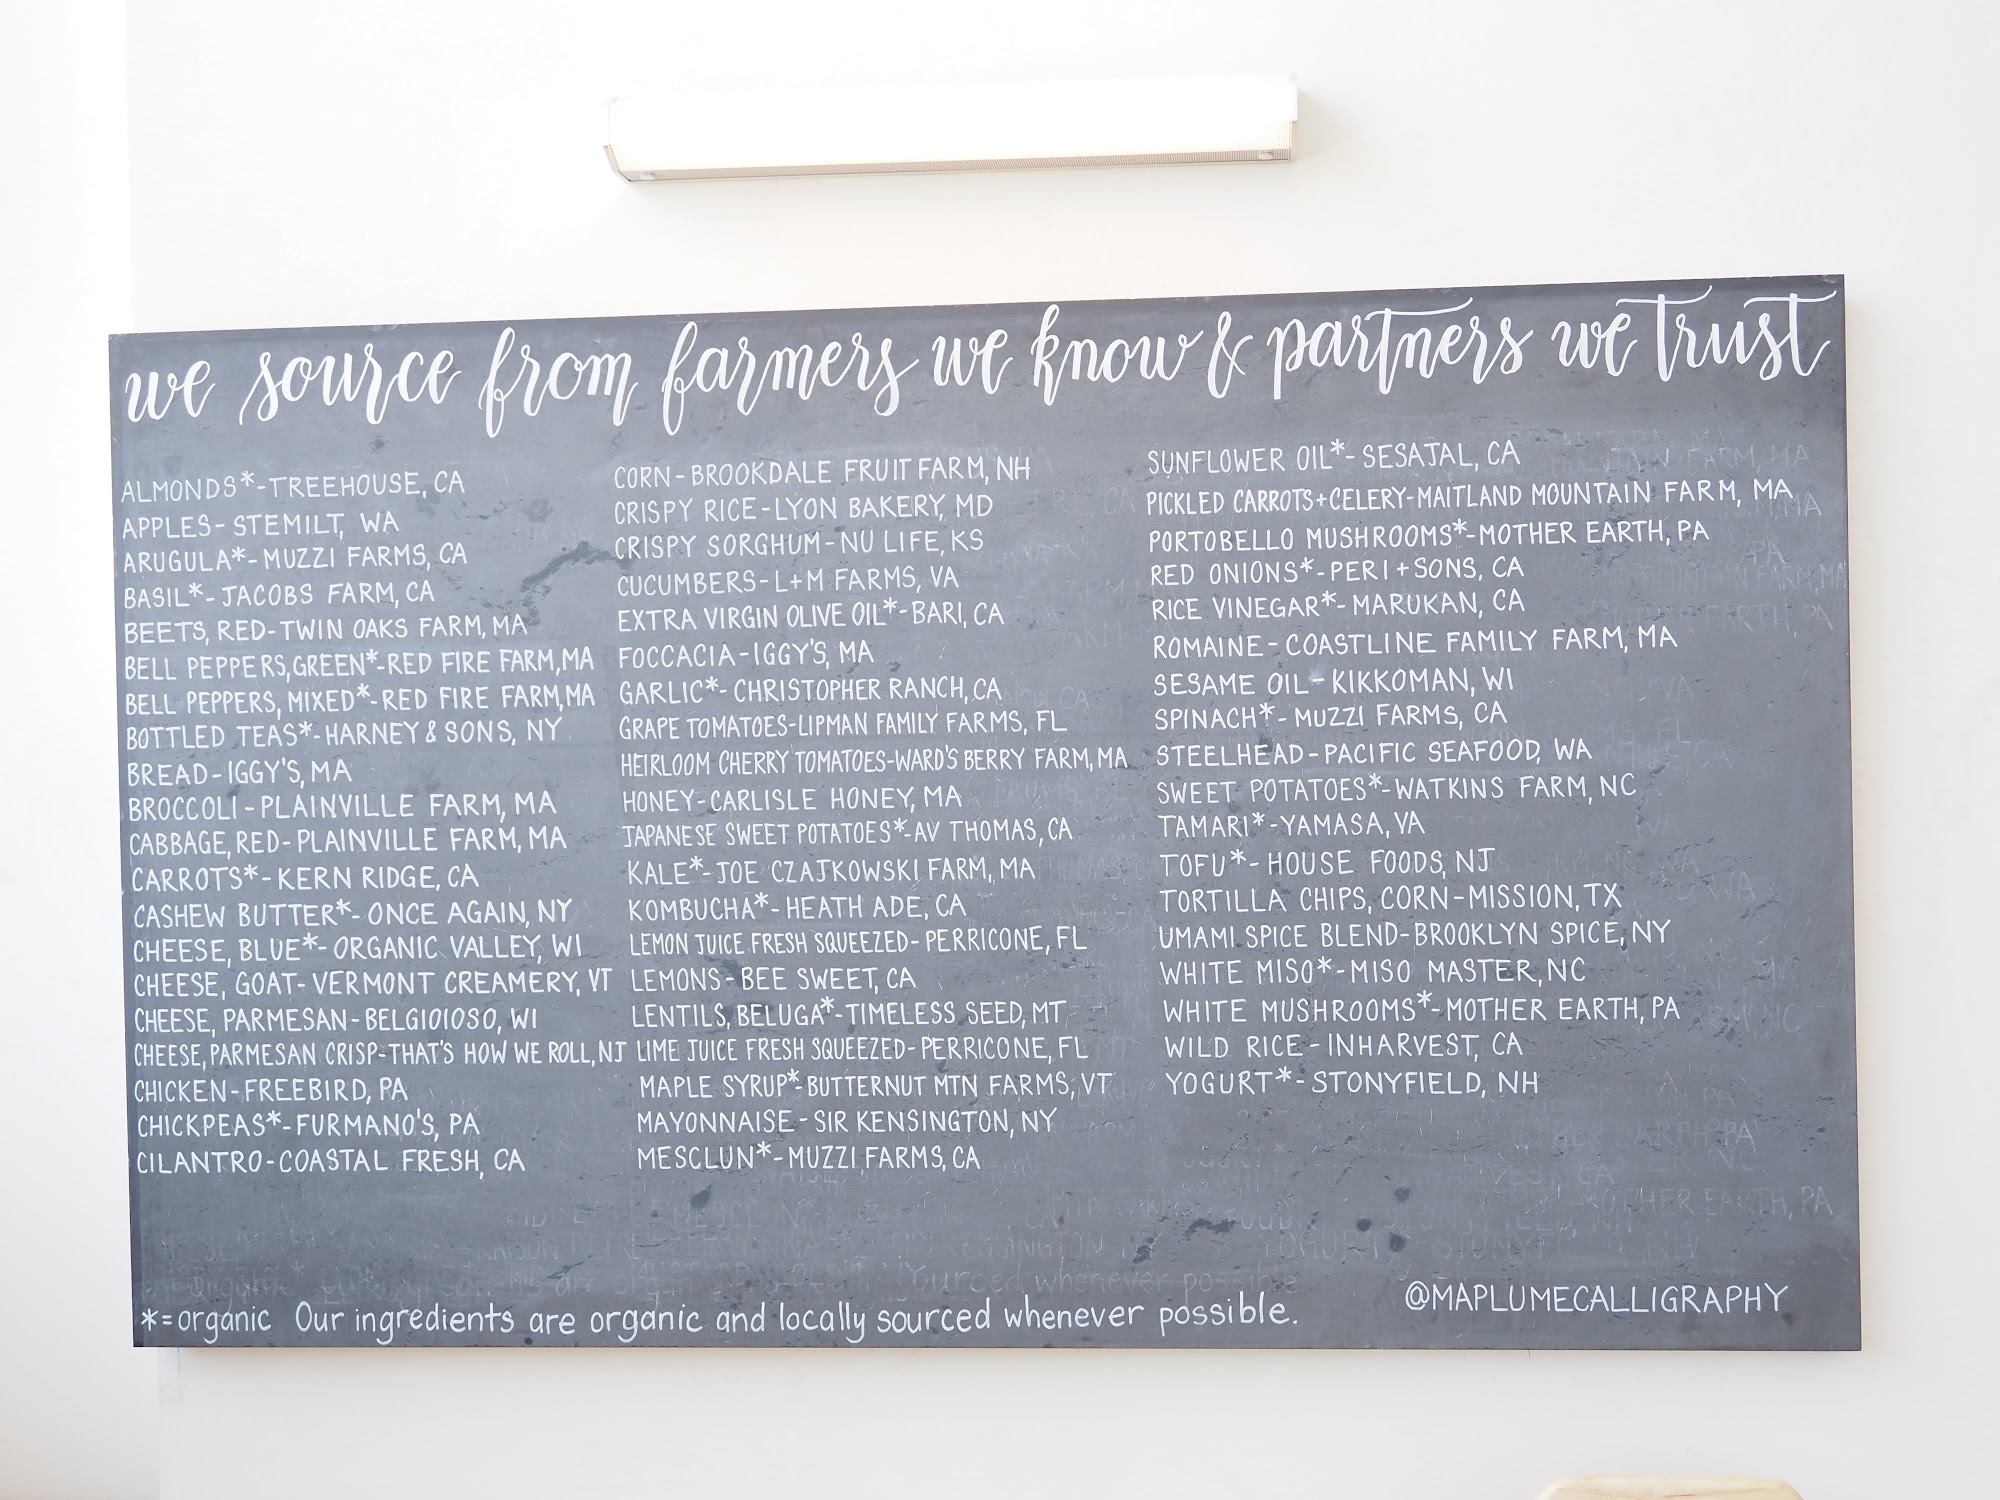 we source from farmers we know & partners we trust
ALMONDS*-TREEHOUSE, CA
APPLES-STEMILT, WA
ARUGULA*-MUZZI FARMS, CA
BASIL*-JACOBS FARM, CA
BEETS, RED-TWIN OAKS FARM, MA
BELL PEPPERS, GREEN*-RED FIRE FARM, MA
BELL PEPPERS, MIXED*-RED FIRE FARM, MA
BOTTLED TEAS*-HARNEY & SONS, NY
BREAD-IGGY'S, MA
BROCCOLI-PLAINVILLE FARM, MA
CABBAGE, RED-PLAINVILLE FARM, MA
CARROTS*-KERN RIDGE, CA
CASHEW BUTTER*-ONCE AGAIN, NY
CHEESE, BLUE*-ORGANIC VALLEY, WI
CHEESE, GOAT-VERMONT CREAMERY, VT
CHEESE, PARMESAN-BELGIOIOSO, WI
CHEESE, PARMESAN CRISP-THAT'S HOW WE ROLL, NJ
CHICKEN-FREEBIRD, PA
CHICKPEAS*-FURMANO'S, PA
CILANTRO-COASTAL FRESH, CA
CORN-BROOKDALE FRUIT FARM, NH
CRISPY RICE-LYON BAKERY, MD
CRISPY SORGHUM-NU LIFE, KS
CUCUMBERS-L+M FARMS, VA
EXTRA VIRGIN OLIVE OIL*-BARI, CA
FOCCACIA-IGGY'S, MA
GARLIC*-CHRISTOPHER RANCH, CA
GRAPE TOMATOES-LIPMAN FAMILY FARMS, FL
HEIRLOOM CHERRY TOMATOES-WARD'S BERRY FARM, MA
HONEY-CARLISLE HONEY, MA
JAPANESE SWEET POTATOES*-AV THOMAS, CA
KALE*-JOE CZAJKOWSKI FARM, MA
KOMBUCHA*-HEATH ADE, CA
LEMON JUICE FRESH SQUEEZED-PERRICONE, FL
LEMONS-BEE SWEET, CA
LENTILS, BELUGA*-TIMELESS SEED, MT
LIME JUICE FRESH SQUEEZED-PERRICONE, FL
MAPLE SYRUP*-BUTTERNUT MTN FARMS, VT
MAYONNAISE-SIR KENSINGTON, NY
MESCLUN*-MUZZI FARMS, CA
SUNFLOWER OIL*-SESAJAL, CA
PICKLED CARROTS+CELERY-MAITLAND MOUNTAIN FARM, MA
PORTOBELLO MUSHROOMS*-MOTHER EARTH, PA
RED ONIONS*-PERI+SONS, CA
RICE VINEGAR*-MARUKAN, CA
ROMAINE-COASTLINE FAMILY FARM, MA
SESAME OIL-KIKKOMAN, WI
SPINACH*-MUZZI FARMS, CA
STEELHEAD-PACIFIC SEAFOOD, WA
SWEET POTATOES*-WATKINS FARM, NC
TAMARI*-YAMASA, VA
TOFU*-HOUSE FOODS, NJ
TORTILLA CHIPS, CORN-MISSION, TX
UMAMI SPICE BLEND-BROOKLYN SPICE, NY
WHITE MISO*-MISO MASTER, NC
WHITE MUSHROOMS*-MOTHER EARTH, PA
WILD RICE-INHARVEST, CA
YOGURT*-STONYFIELD, NH
*=organic Our ingredients are organic and locally sourced whenever possible.
@MAPLUMECALLIGRAPHY